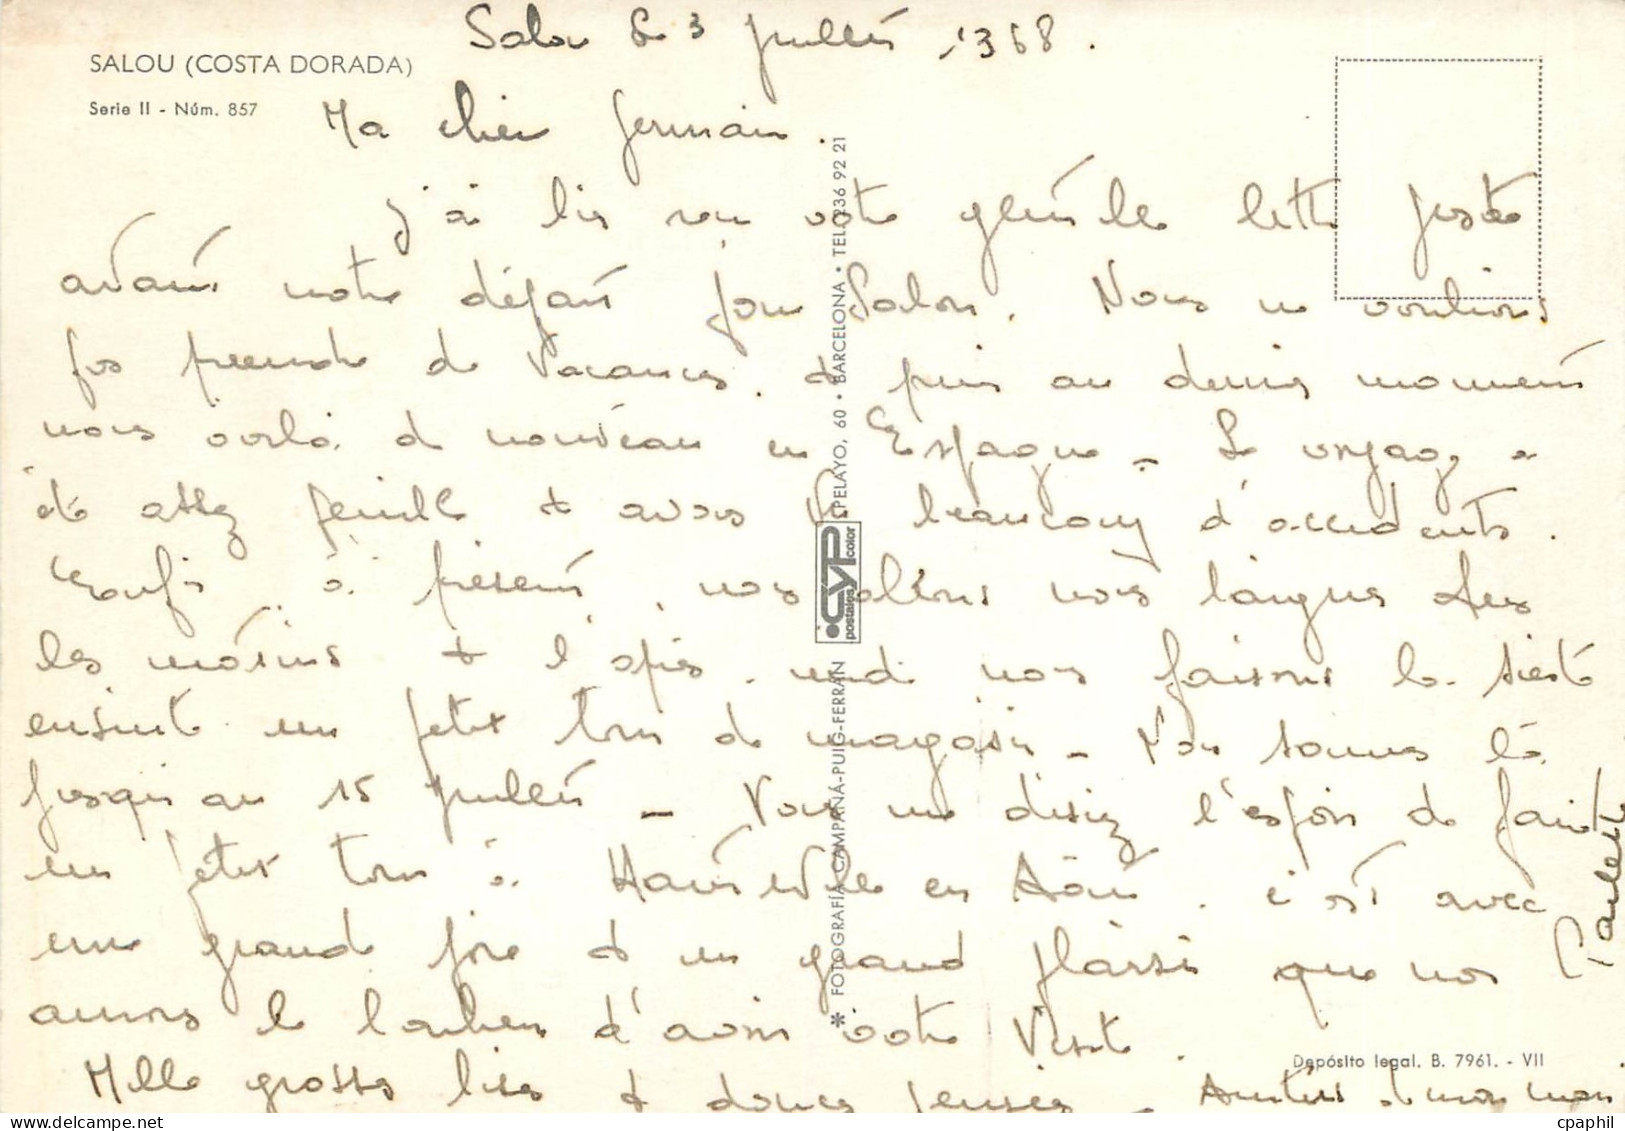 SALOU (COSTA DORADA)
Serie II - Núm. 857
Salou le 3 juillet 1968.
Ma chère Germain.
j'ai bien reçu votre gentille lettre juste
avant notre départ pour Salou. Nous ne voulions
pas prendre de vacances. et puis au dernier moment
nous voilà de nouveau en Espagne - Le voyage a
été assez pénible et avons vu beaucoup d'accidents.
Enfin à présent nous allons nous baigner tous
les matins et l'après midi nous faisons la sieste
ensuite un petit tour de magasin - Nous sommes là
jusqu'au 15 juillet - Vous me disiez l'espoir de faire
un petit tour à en Août. c'est avec
une grande joie et un grand plaisir que nous
aurons le bonheur d'avoir votre visite.
Mille grosses bises et douces pensées - Amitiés de mon mari
Paulette
* FOTOGRAFÍA CAMPAÑÁ-PUIG-FERRÁN
CYP
postales color
PELAYO, 60 • BARCELONA • TEL. 236 92 21
Depósito legal. B. 7961. - VII
cpaphil